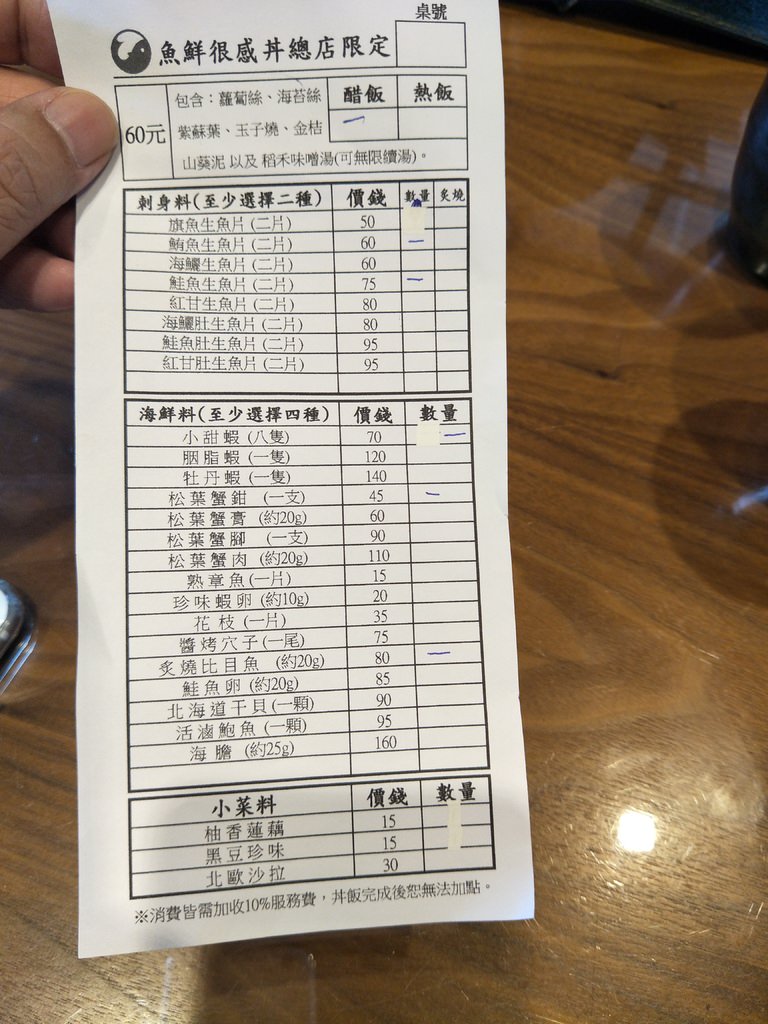 桌號
魚鮮很感丼總店限定
60元 包含：蘿蔔絲、海苔絲 醋飯 熱飯
紫蘇葉、玉子燒、金桔 一
山葵泥 以及 稻禾味噌湯(可無限續湯)。
刺身料(至少選擇二種) 價錢 數量 炙燒
旗魚生魚片(二片) 50
鮪魚生魚片(二片) 60 一
海鱺生魚片(二片) 60
鮭魚生魚片(二片) 75 一
紅甘生魚片(二片) 80
海鱺肚生魚片(二片) 80
鮭魚肚生魚片(二片) 95
紅甘肚生魚片(二片) 95
海鮮料(至少選擇四種) 價錢 數量
小甜蝦(八隻) 70 一
胭脂蝦(一隻) 120
牡丹蝦(一隻) 140
松葉蟹鉗 (一支) 45 一
松葉蟹膏 (約20g) 60
松葉蟹腳 (一支) 90
松葉蟹肉 (約20g) 110
熟章魚(一片) 15
珍味蝦卵 (約10g) 20
花枝(一片) 35
醬烤穴子(一尾) 75
炙燒比目魚 (約20g) 80 一
鮭魚卵(約20g) 85
北海道干貝(一顆) 90
活滷鮑魚(一顆) 95
海膽 (約25g) 160
小菜料 價錢 數量
柚香蓮藕 15
黑豆珍味 15
北歐沙拉 30
※消費皆需加收10%服務費，丼飯完成後恕無法加點。